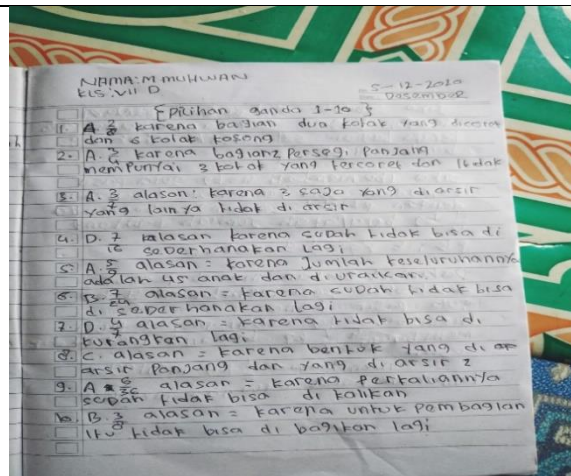 NAMA: M. MUHWAN
KLS: VII D
5-12-2020
Desember
[Pilihan ganda 1-10 }
1. A. karena bagian dua kolak yang dicoret
dan 6 kolak kosong
2. A. 3 karena bagianz Persegi Panjain
mempunyai 3 kotok yang tercoret dan 1 tidak
3. A. 3/7 alasan: karena 3 saja yang di arsir
yang lain ya tidak di arsir
4. D. 7/16 alasan karena sudah tidak bisa di
sederhanakan Lagi
5. A. 5/9 alasan = karena Jumlah keseluruhannya
adalah 45 anak dan di uraikan.
6. B. 7/24 alasan = karena sudah tidak bisa
di sederhanakan Lagi
7. D. 4/7 alasan = karena tidak bisa di
kurangkan Lagi
8. C. alasan = karena bentuk yang di ar
arsir Panjang dan yang di arsir 2
9. A 6/36 alasan = karena Perkaliannya
sudah tidak bisa di kalikan
10. B. 3/8 alasan = karena untuk pembagian
itu tidak bisa di bagikan lagi